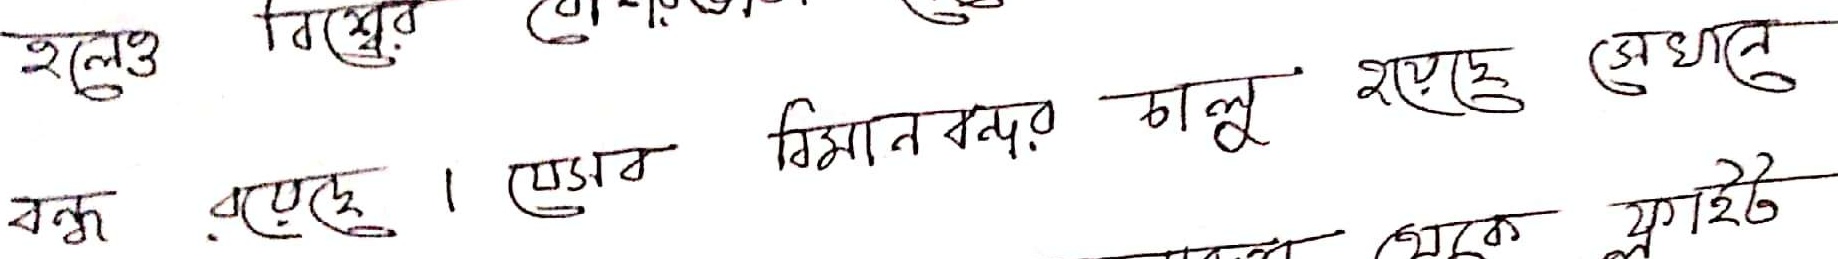 হলেও বিশ্বের
বন্ধ রয়েছে । যেসব বিমান বন্দর চালু হয়েছে সেখানে
থেকে ফ্লাইট